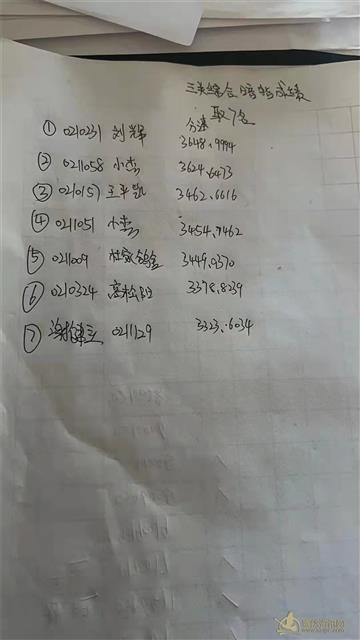 三关综合暗插成绩
取7名
分速
① 0210231 刘辉 3648.9994
② 0211058 小李 3624.6473
③ 0210157 王平凯 3462.6616
④ 0211051 小李 3454.7462
⑤ 0211009 杜家鸽舍 3449.0370
⑥ 0210324 高松阳 3378.8239
⑦ 0211129 3323.6034